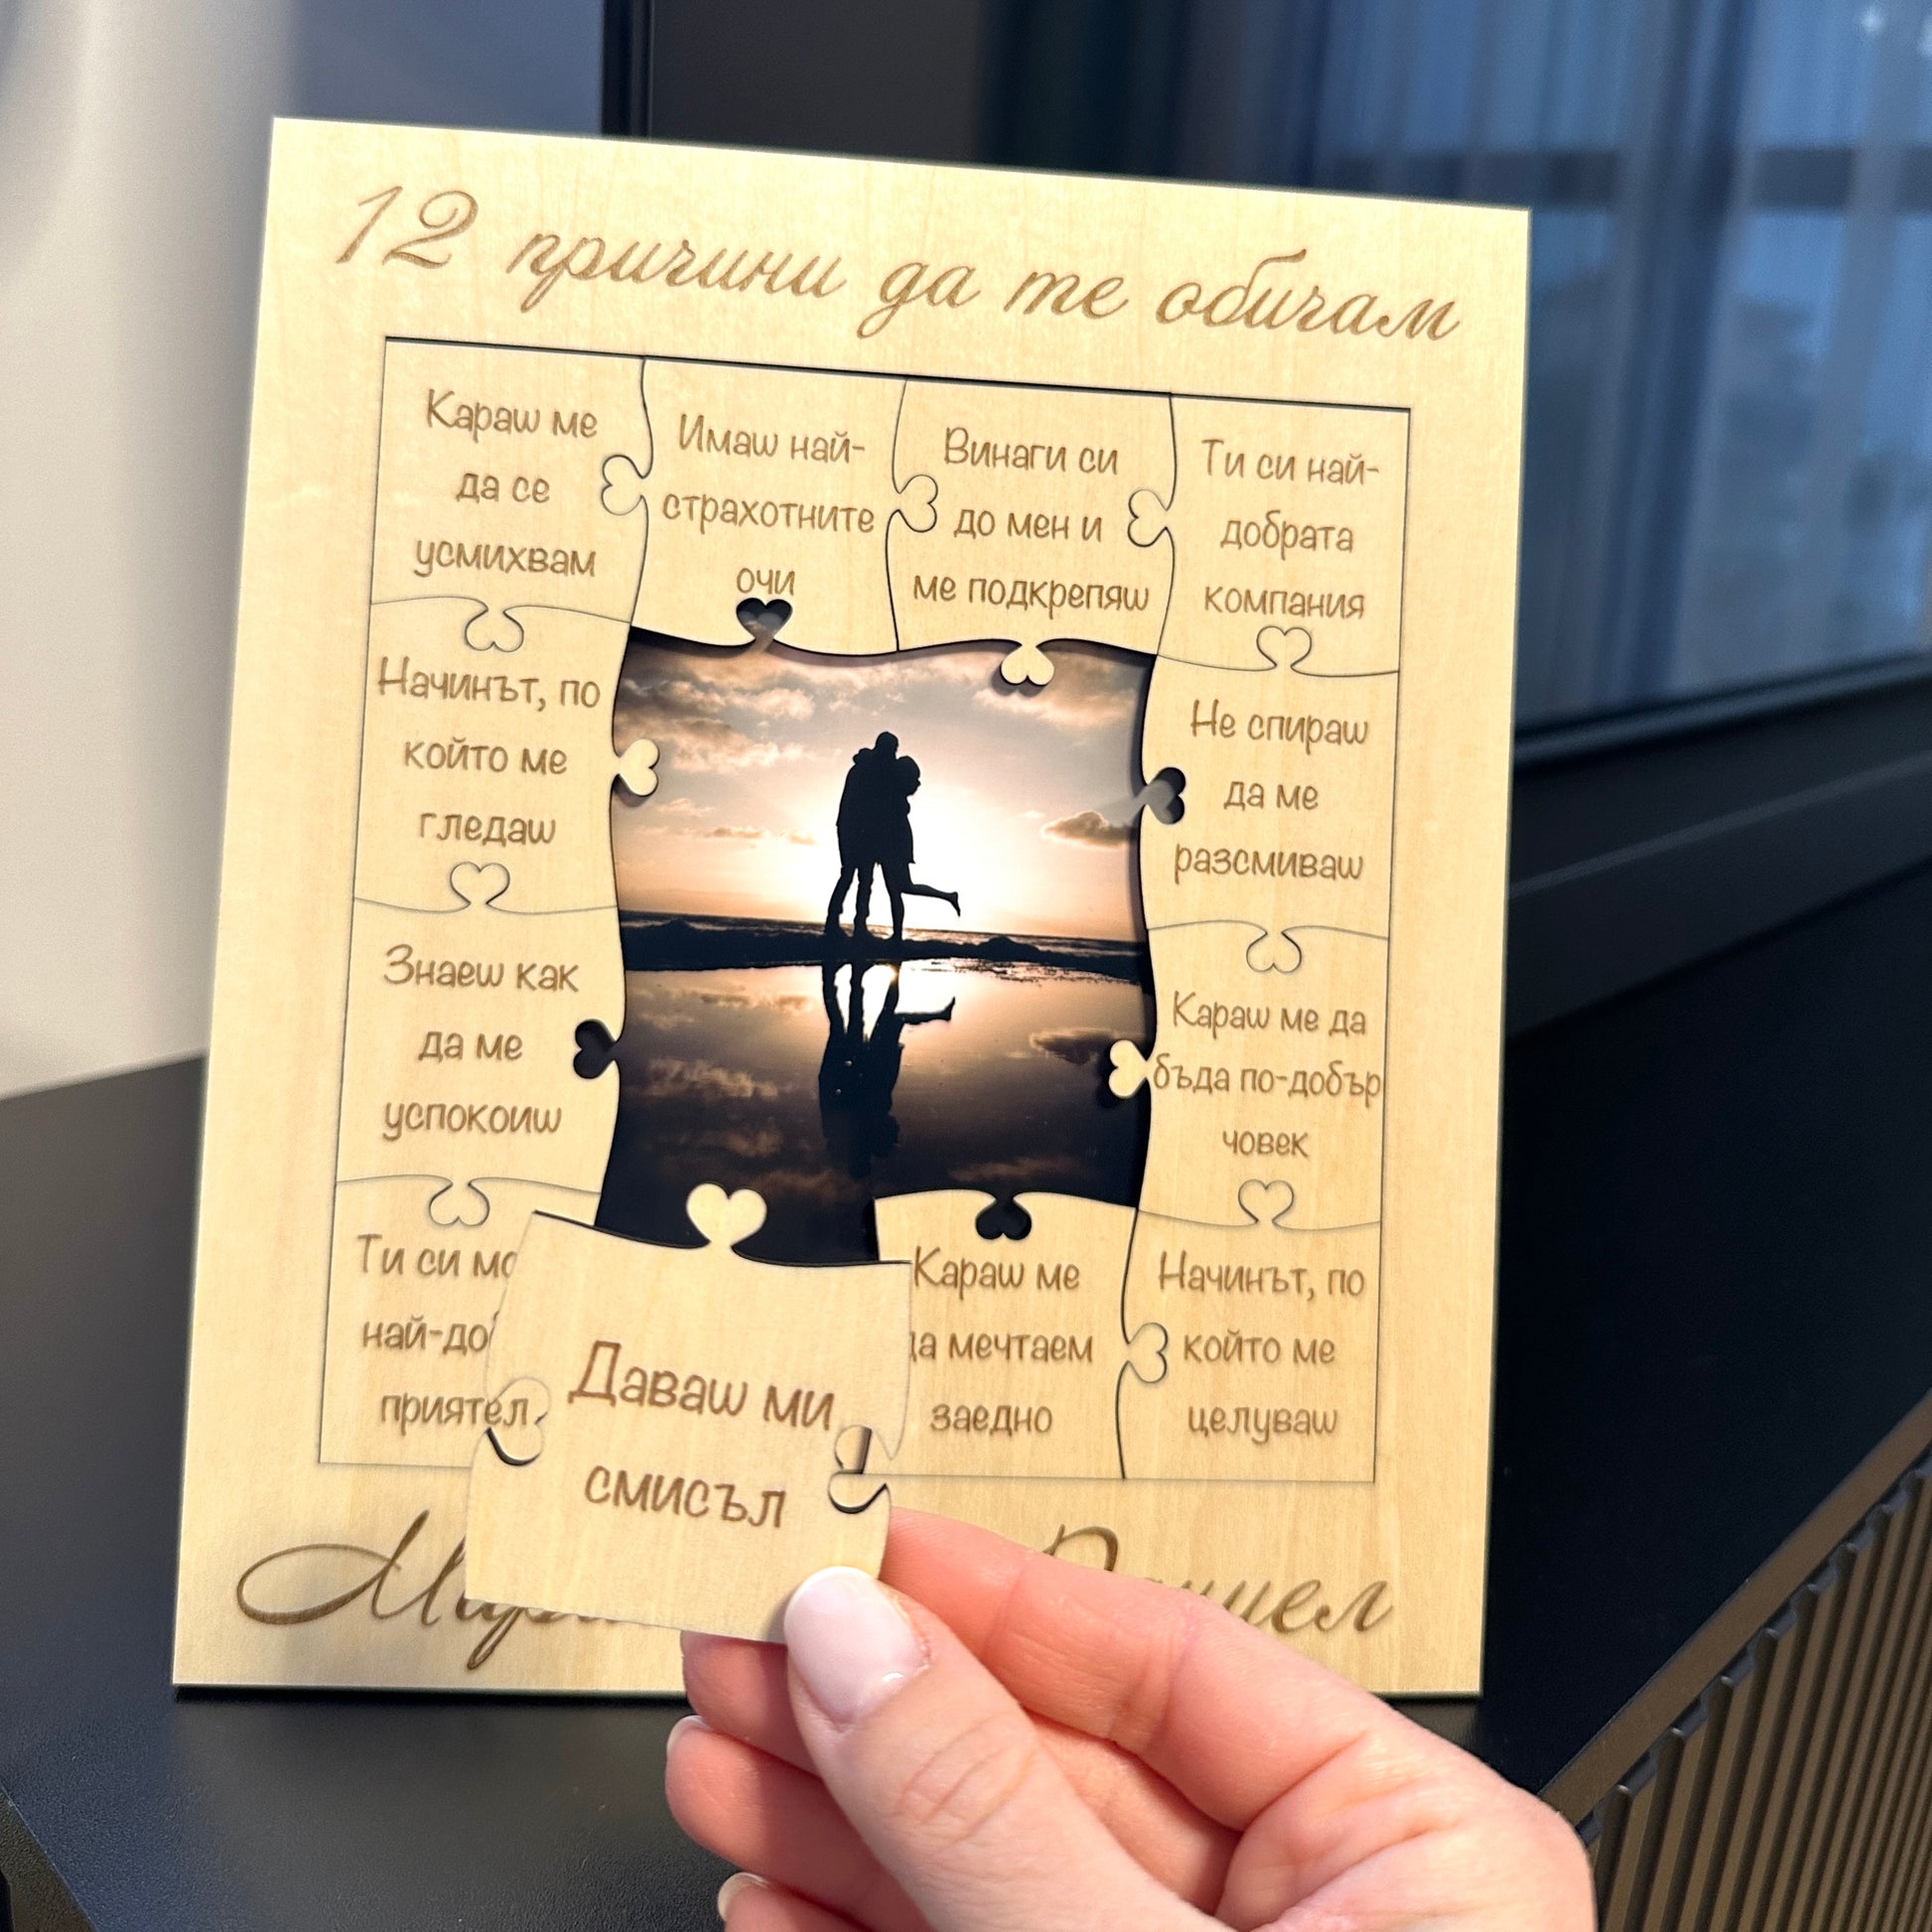 12 причини да те обичам
Караш ме
да се
усмихвам
Имаш най-
страхотните
очи
Винаги си
до мен и
ме подкрепяш
Ти си най-
добрата
компания
Начинът, по
който ме
гледаш
Не спираш
да ме
разсмиваш
Знаеш как
да ме
успокоиш
Караш ме да
бъда по-добър
човек
Ти си
приятел
Даваш ми
смисъл
Караш ме
да мечтаем
заедно
Начинът, по
който ме
целуваш